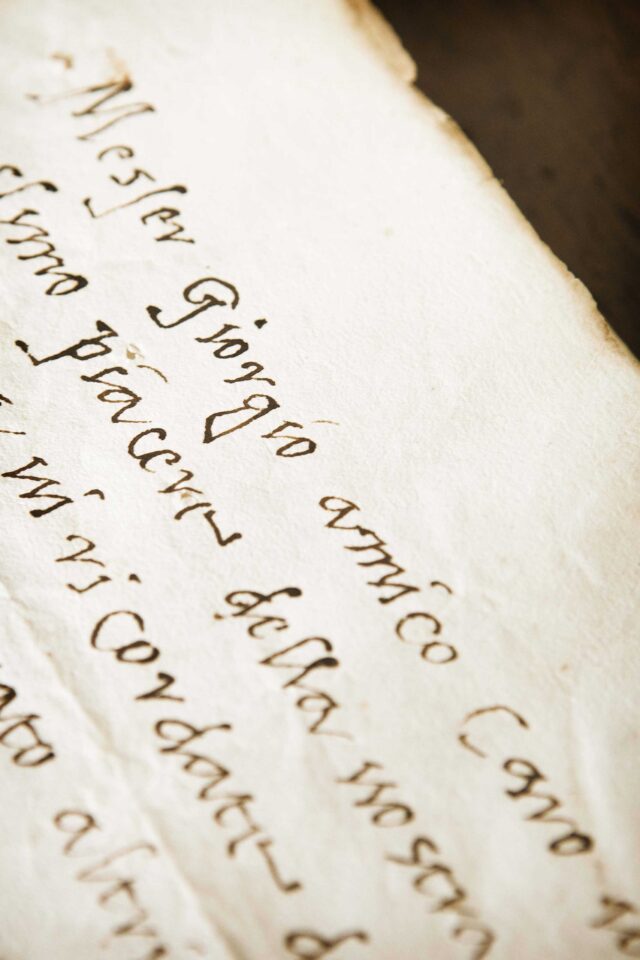 Messer Giorgio amico Caro
ssimo piacere della vostra
vi ricordate d
ato altri